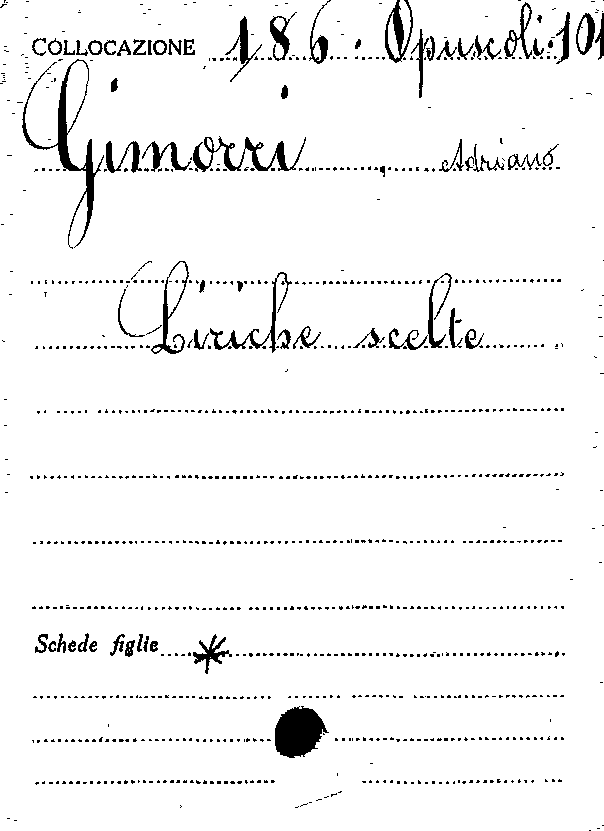 COLLOCAZIONE 186. Opuscoli.101
Gimorri, Adriano
Liriche scelte
Schede figlie *